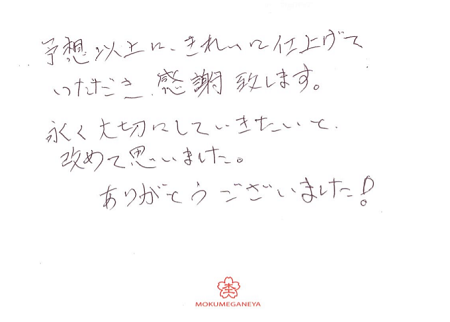 予想以上に、きれいに仕上げて
いただき、感謝致します。
永く大切にしていきたいと、
改めて思いました。
ありがとうございました！
MOKUMEGANEYA